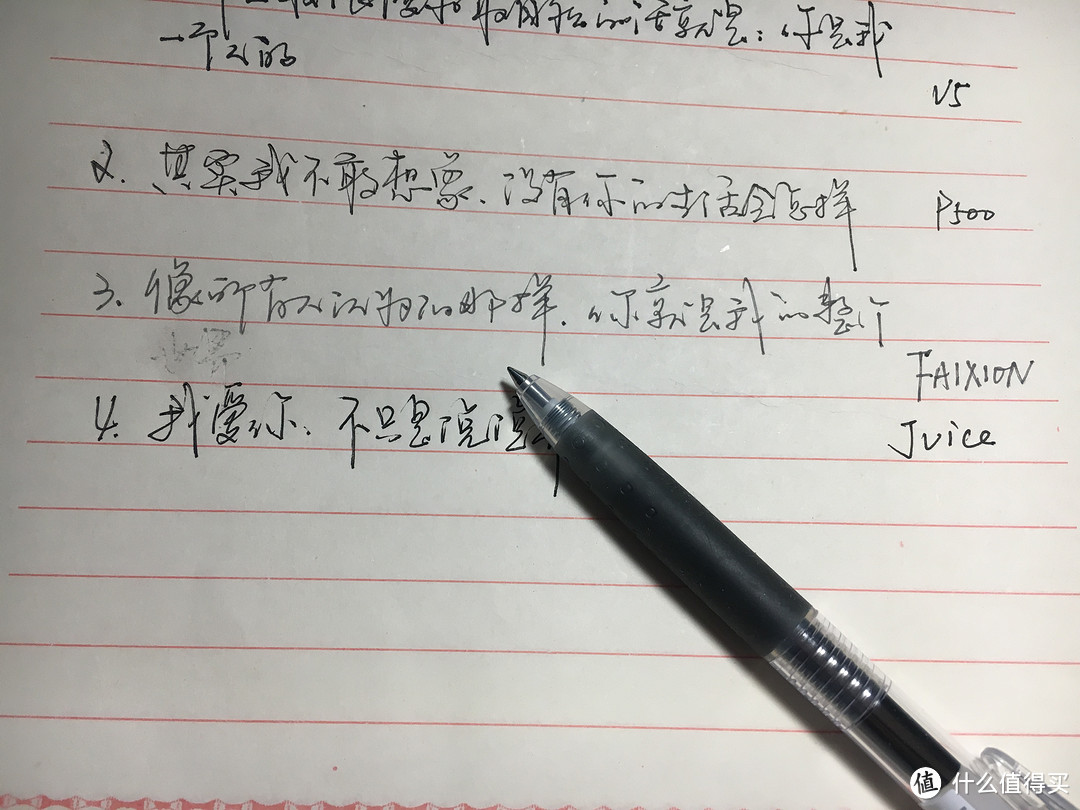 的话就是：你是我
一个人的
V5
2. 其实我不敢想象、没有你的生活会怎样
P500
3. 像所有人认为的那样、你就是我的整个
世界
FAIXION
4. 我爱你、不只是说说
Juice
值 什么值得买